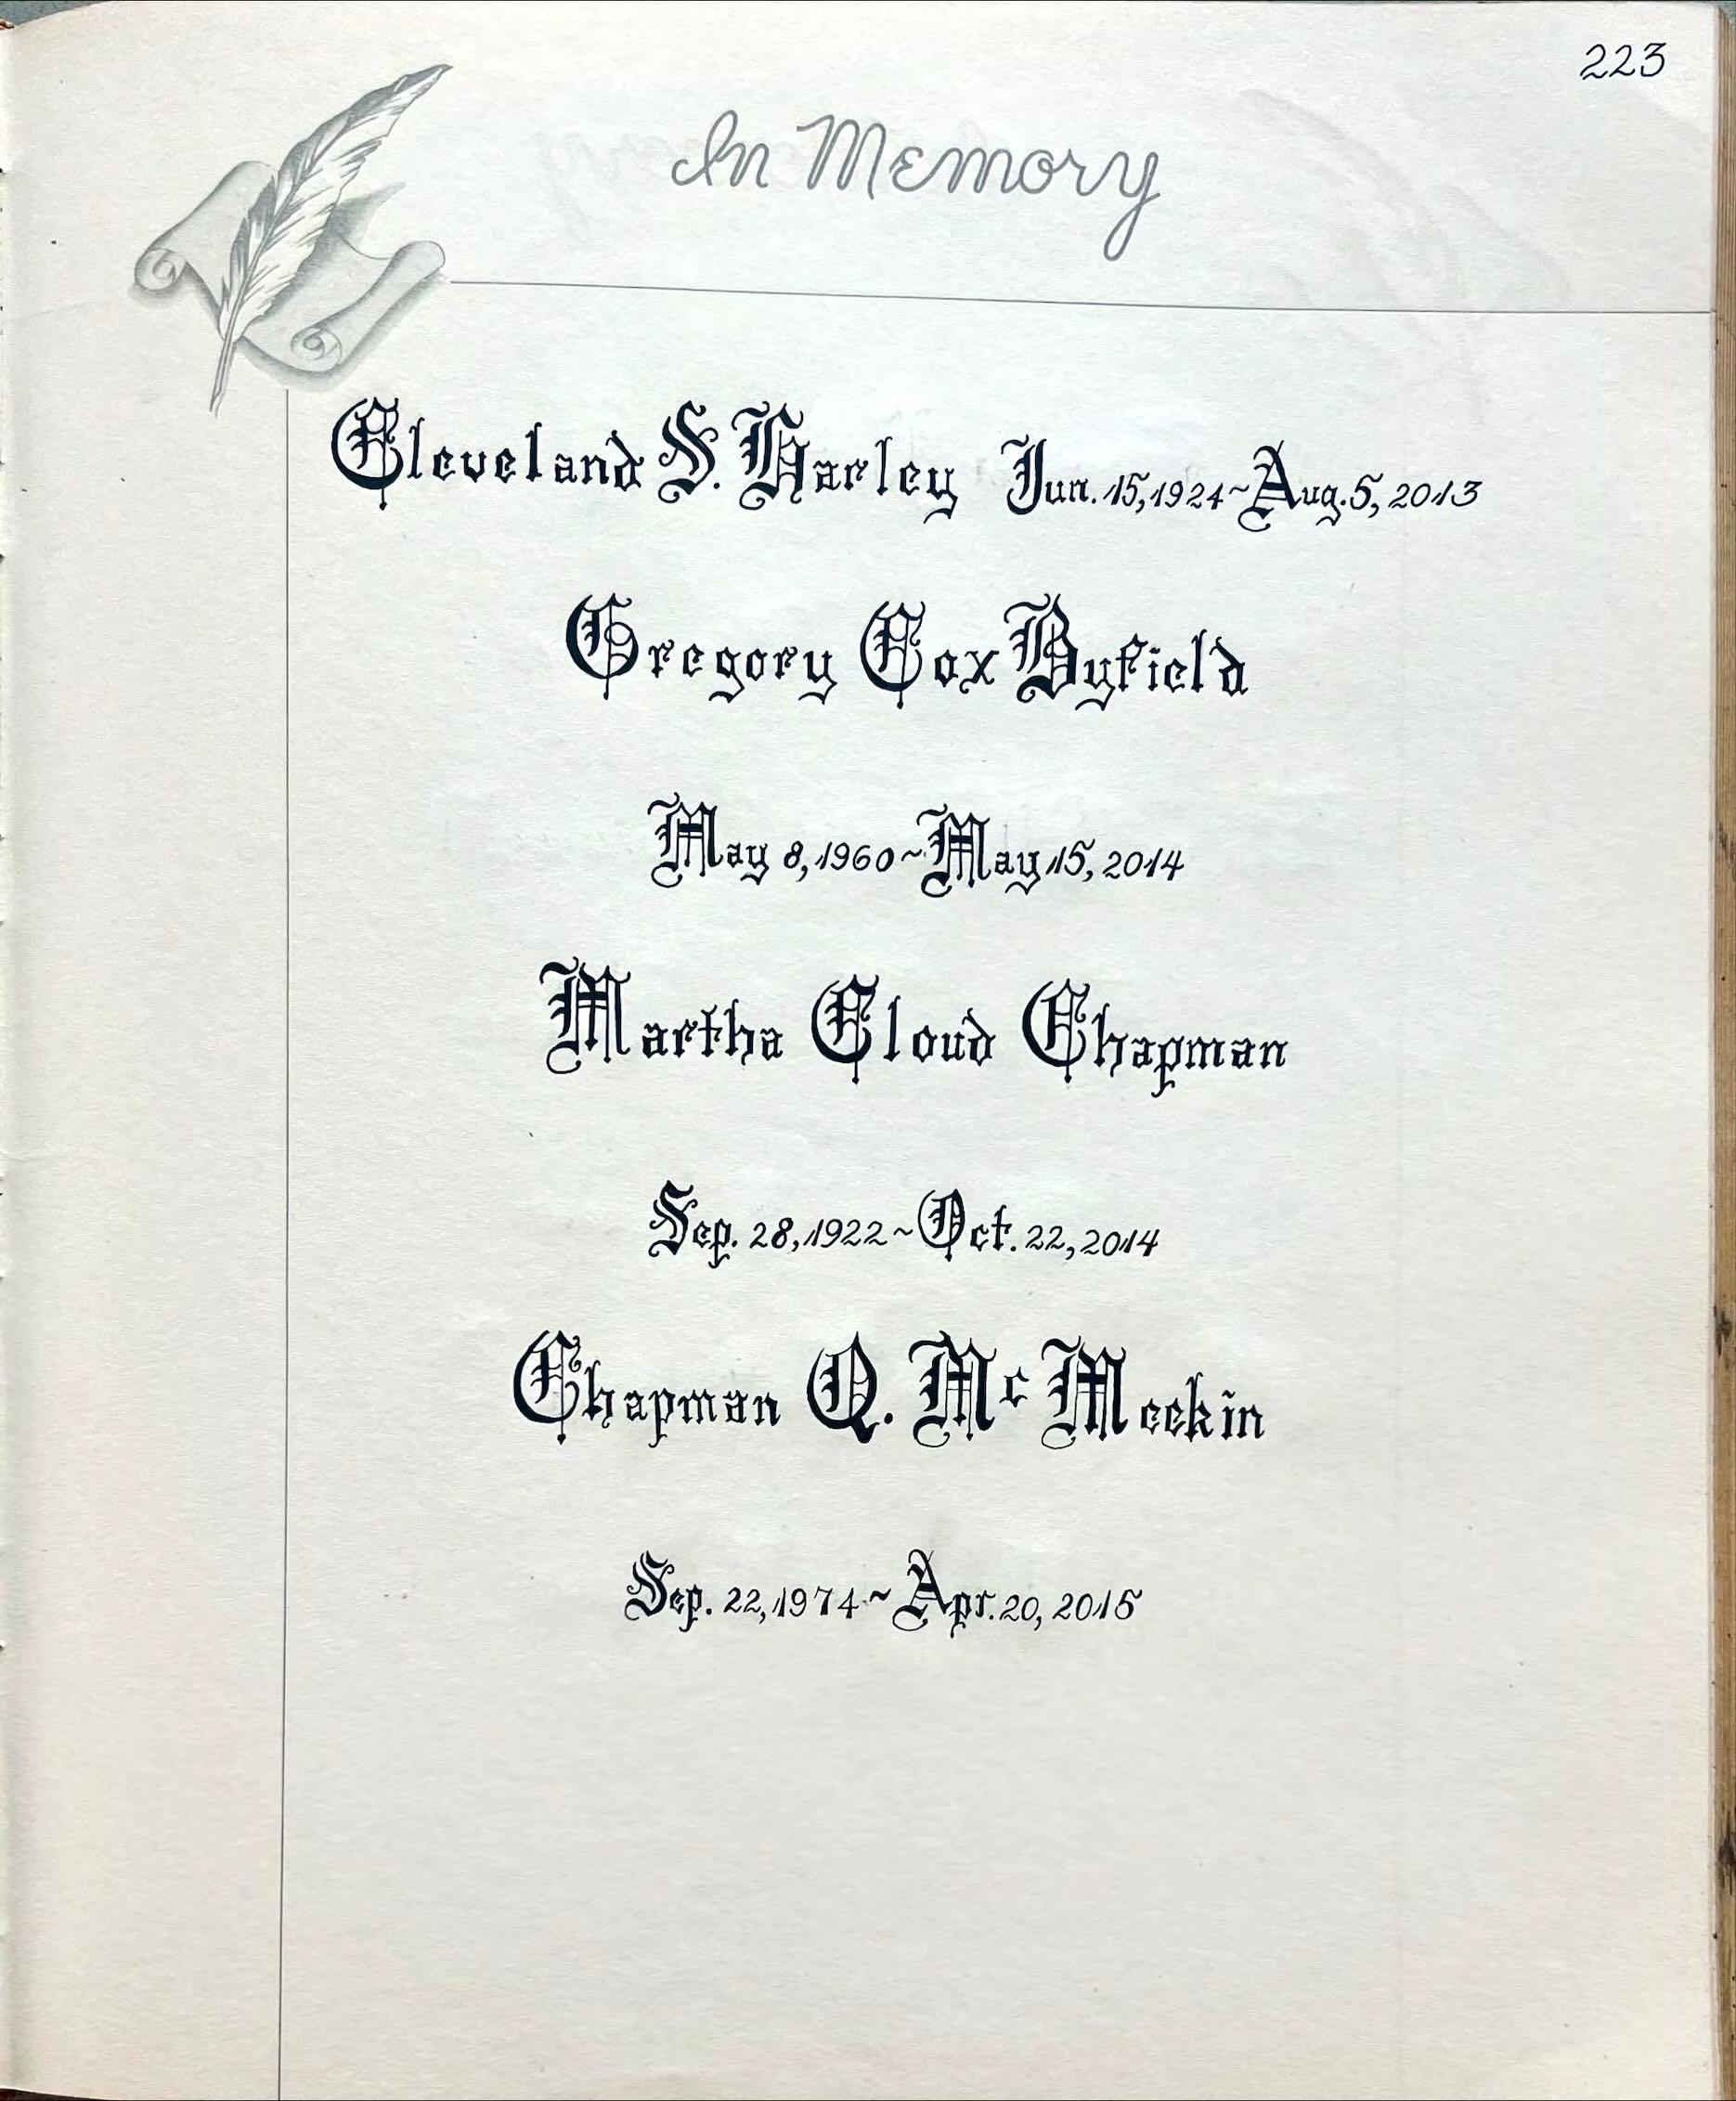 223
In Memory
Cleveland S. Harley Jun. 15, 1924~Aug. 5, 2013
Gregory Cox Byfield
May 8, 1960~May 15, 2014
Martha Cloud Chapman
Sep. 28, 1922~Oct. 22, 2014
Chapman Q. Mc Meekin
Sep. 22, 1974~Apr. 20, 2015